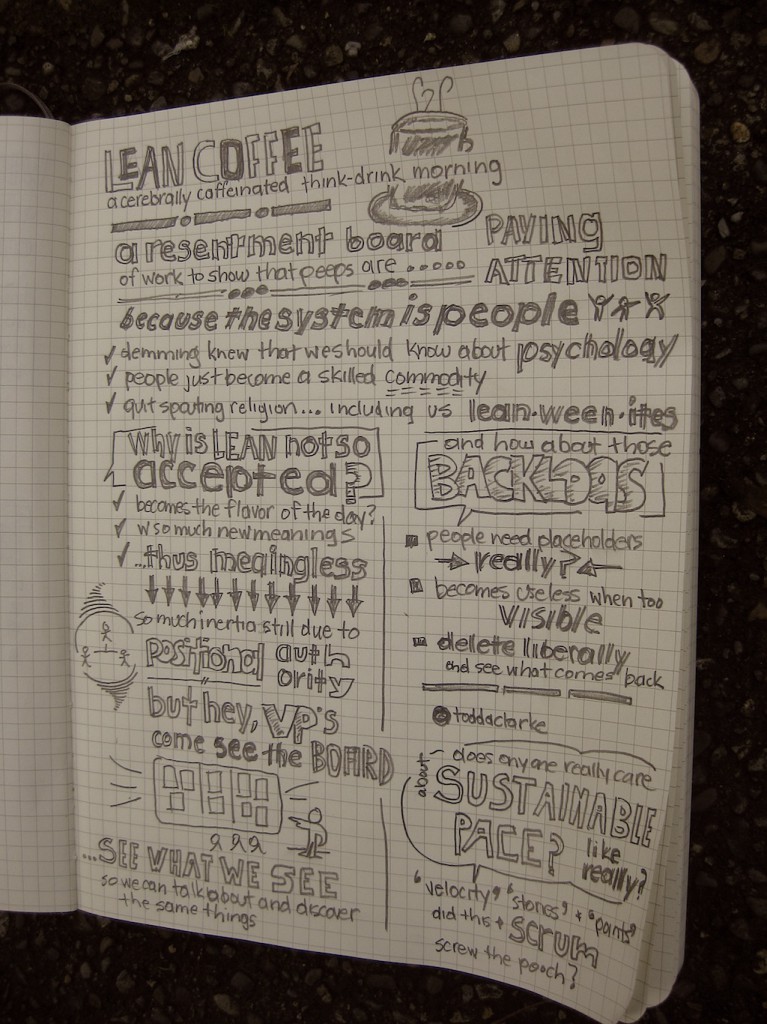 LEAN COFFEE
a cerebrally caffeinated think-drink morning
a resentment board
of work to show that peeps are .....
PAYING
ATTENTION
because the system is people
✓ demming knew that we should know about psychology
✓ people just become a skilled commodity
✓ quit spouting religion... including us lean-ween-ites
Why is LEAN not so
accepted?
✓ becomes the flavor of the day?
✓ w so much new meanings
✓ ...thus meaingless
so much inertia still due to
positional auth
ority
but hey, VP's
come see the BOARD
...SEE WHAT WE SEE
so we can talk about and discover
the same things
and how about those
BACKLOGS
people need placeholders
→ really? ←
becomes useless when too
VISIBLE
delete liberally
and see what comes back
@toddaclarke
does anyone really care
about
SUSTAINABLE
PACE?
like
really?
"velocity" "stories" + "points"
did this + scrum
screw the pooch?